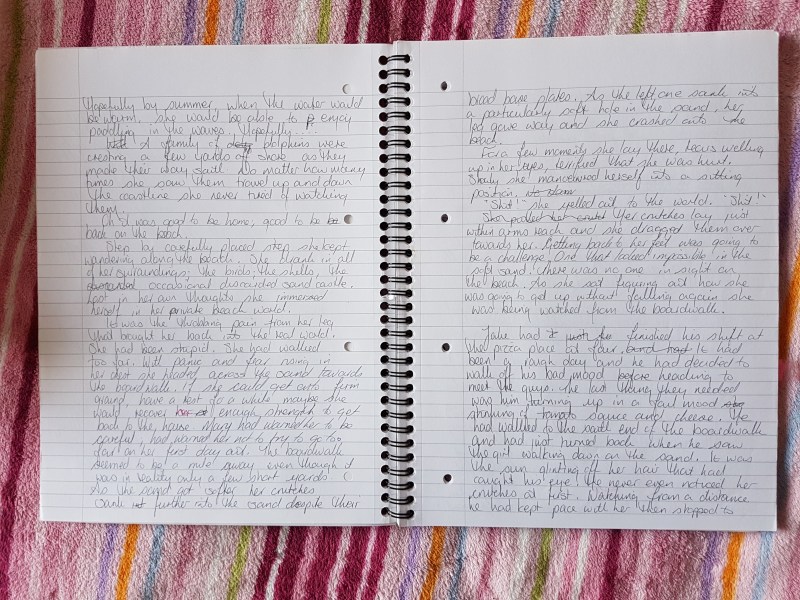 Hopefully by summer, when the water would
be warm, she would be able to enjoy
paddling in the waves. Hopefully...
A family of dolphins were
cresting a few yards off shore as they
made their way south. No matter how many
times she saw them travel up and down
the coastline she never tired of watching
them.
Oh it was good to be home, good to be
back on the beach.
Step by carefully placed step she kept
wandering along the beach. She drank in all
of her surroundings; the birds, the shells, the
occasional discarded sand castle.
Lost in her own thoughts she immersed
herself in her private beach world.
It was the throbbing pain from her leg
that brought her back into the real world.
She had been stupid. She had walked
too far. With panic and fear rising in
her chest she headed across the sand towards
the boardwalk. If she could get onto firm
ground, have a rest for a while maybe she
would recover enough strength to get
back to the house. Mary had warned her to be
careful, had warned her not to try to go too
far on her first day out. The boardwalk
seemed to be a mile away even though it
was in reality only a few short yards.
As the sand got softer her crutches
sank further into the sand despite their
broad base plates. As the left one sank into
a particularly soft hole in the sand, her
leg gave way and she crashed onto the
beach.
For a few moments she lay there, tears welling
up in her eyes, terrified that she was hurt.
Slowly she manoeuvred herself into a sitting
position.
"Shit!" she yelled out to the world. "Shit!"
Her crutches lay just
within arms reach and she dragged them over
towards her. Getting back to her feet was going to
be a challenge. One that looked impossible in the
soft sand. There was no one in sight on
the beach. As she sat figuring out how she
was going to get up without falling again she
was being watched from the boardwalk.
Jake had finished his shift at
the pizza place at four. It had
been a tough day and he had decided to
walk off his bad mood before heading to
meet the guys. The last thing they needed
was him turning up in a foul mood
stinking of tomato sauce and cheese. He
had walked to the south end of the boardwalk
and had just turned back when he saw
the girl walking down on the sand. It was
the sun glinting off her hair that had
caught his eye. He never even noticed her
crutches at first. Watching from a distance
he had kept pace with her then stopped to